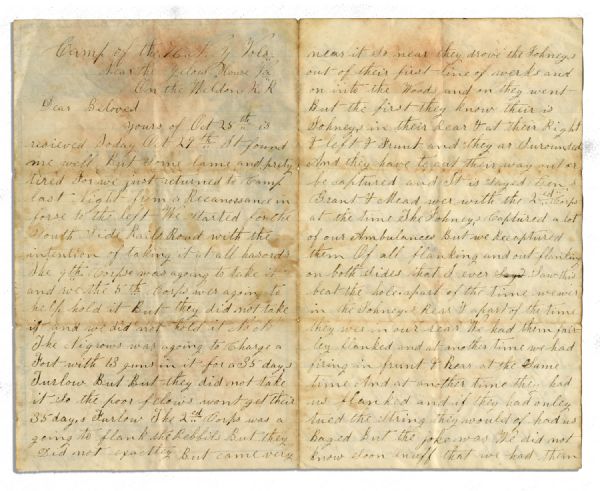 Camp of the N. Y. Vols
near the yelow House Va
On the Weldon R. R
Dear Beloved
yours of Oct 25th is
recieved Today Oct 29th It found
me well But Some lame and prety
tired For we just returned to Camp
last night from a Recanosance in
forse to the left We Started for the
South Side Raile Road with the
intention of taking it at all hasords
The 9th Corps was agoing to take it
and we the 5th Corps wer agoing to
help hold it But they did not take
it and we did not hold it
The Nigrows was going to Charge a
Fort with 18 guns in it for a 35 days
Furlow But But they did not take
it So the poor felows wont get their
35 days Furlow The 2nd Corps was a
going to flank the Rebbils But they
Did not exactley But came very
near it So near they drove the Johneys
out of their first line of werks and
on into the Woods and on they went
But the first they know their is
Johneys in their Rear & at their Right
& left & Frunt and they ar Surounded
And they have to cut their way out or
be captured and It is Sayed Gen,s
Grant & Mead wer with the 2nd Corps
at the time The Johneys Captured a lot
of our Ambulances But we Recaptured
them Of all flanking and out flanking
on both Sides that I ever Saw this
beat the hole apart of the time we wer
in the Johneys Rear & apart of the time
they wer in our rear We had them fair
ley flanked and at another time we had
firing in frunt & Rear at the Same
time And at another time they had
us flanked and if they had onley
tied the String they would of had us
Baged But the joke was We did not
know Soon enuff that we had them